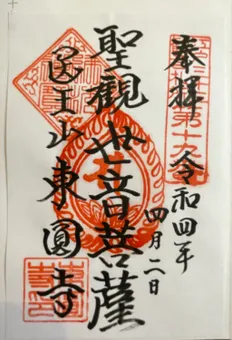 奉拝
令和四年
四月二日
聖観世音菩薩
医王山東圓寺